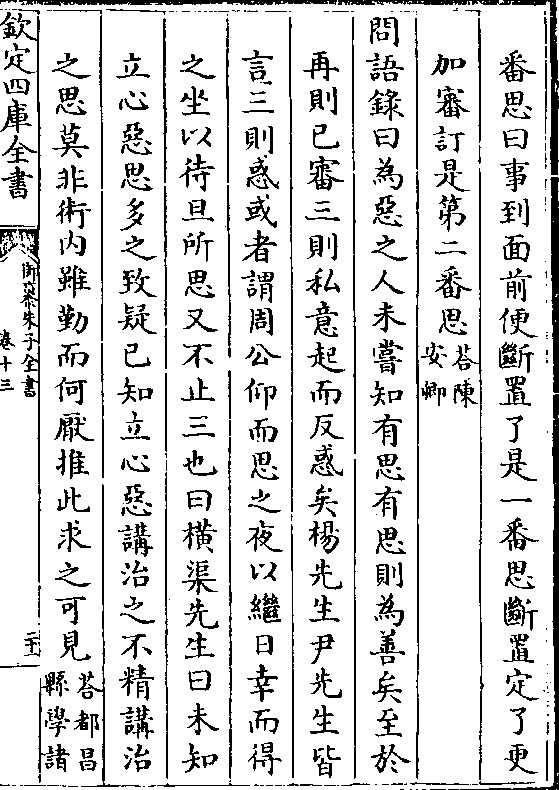 番思曰事到面前便斷置了是一番思斷置定了更
加審訂是第二番思荅陳安卿
問語錄曰為惡之人未嘗知有思有思則為善矣至於
再則已審三則私意起而反惑矣楊先生尹先生皆
言三則惑或者謂周公仰而思之夜以繼日幸而得
之坐以待旦所思又不止三也曰橫渠先生曰未知
立心惡思多之致疑已知立心惡講治之不精講治
之思莫非術内雖勤而何厭推此求之可見荅都昌縣學諸
欽定四庫全書
御纂朱子全書
卷十三